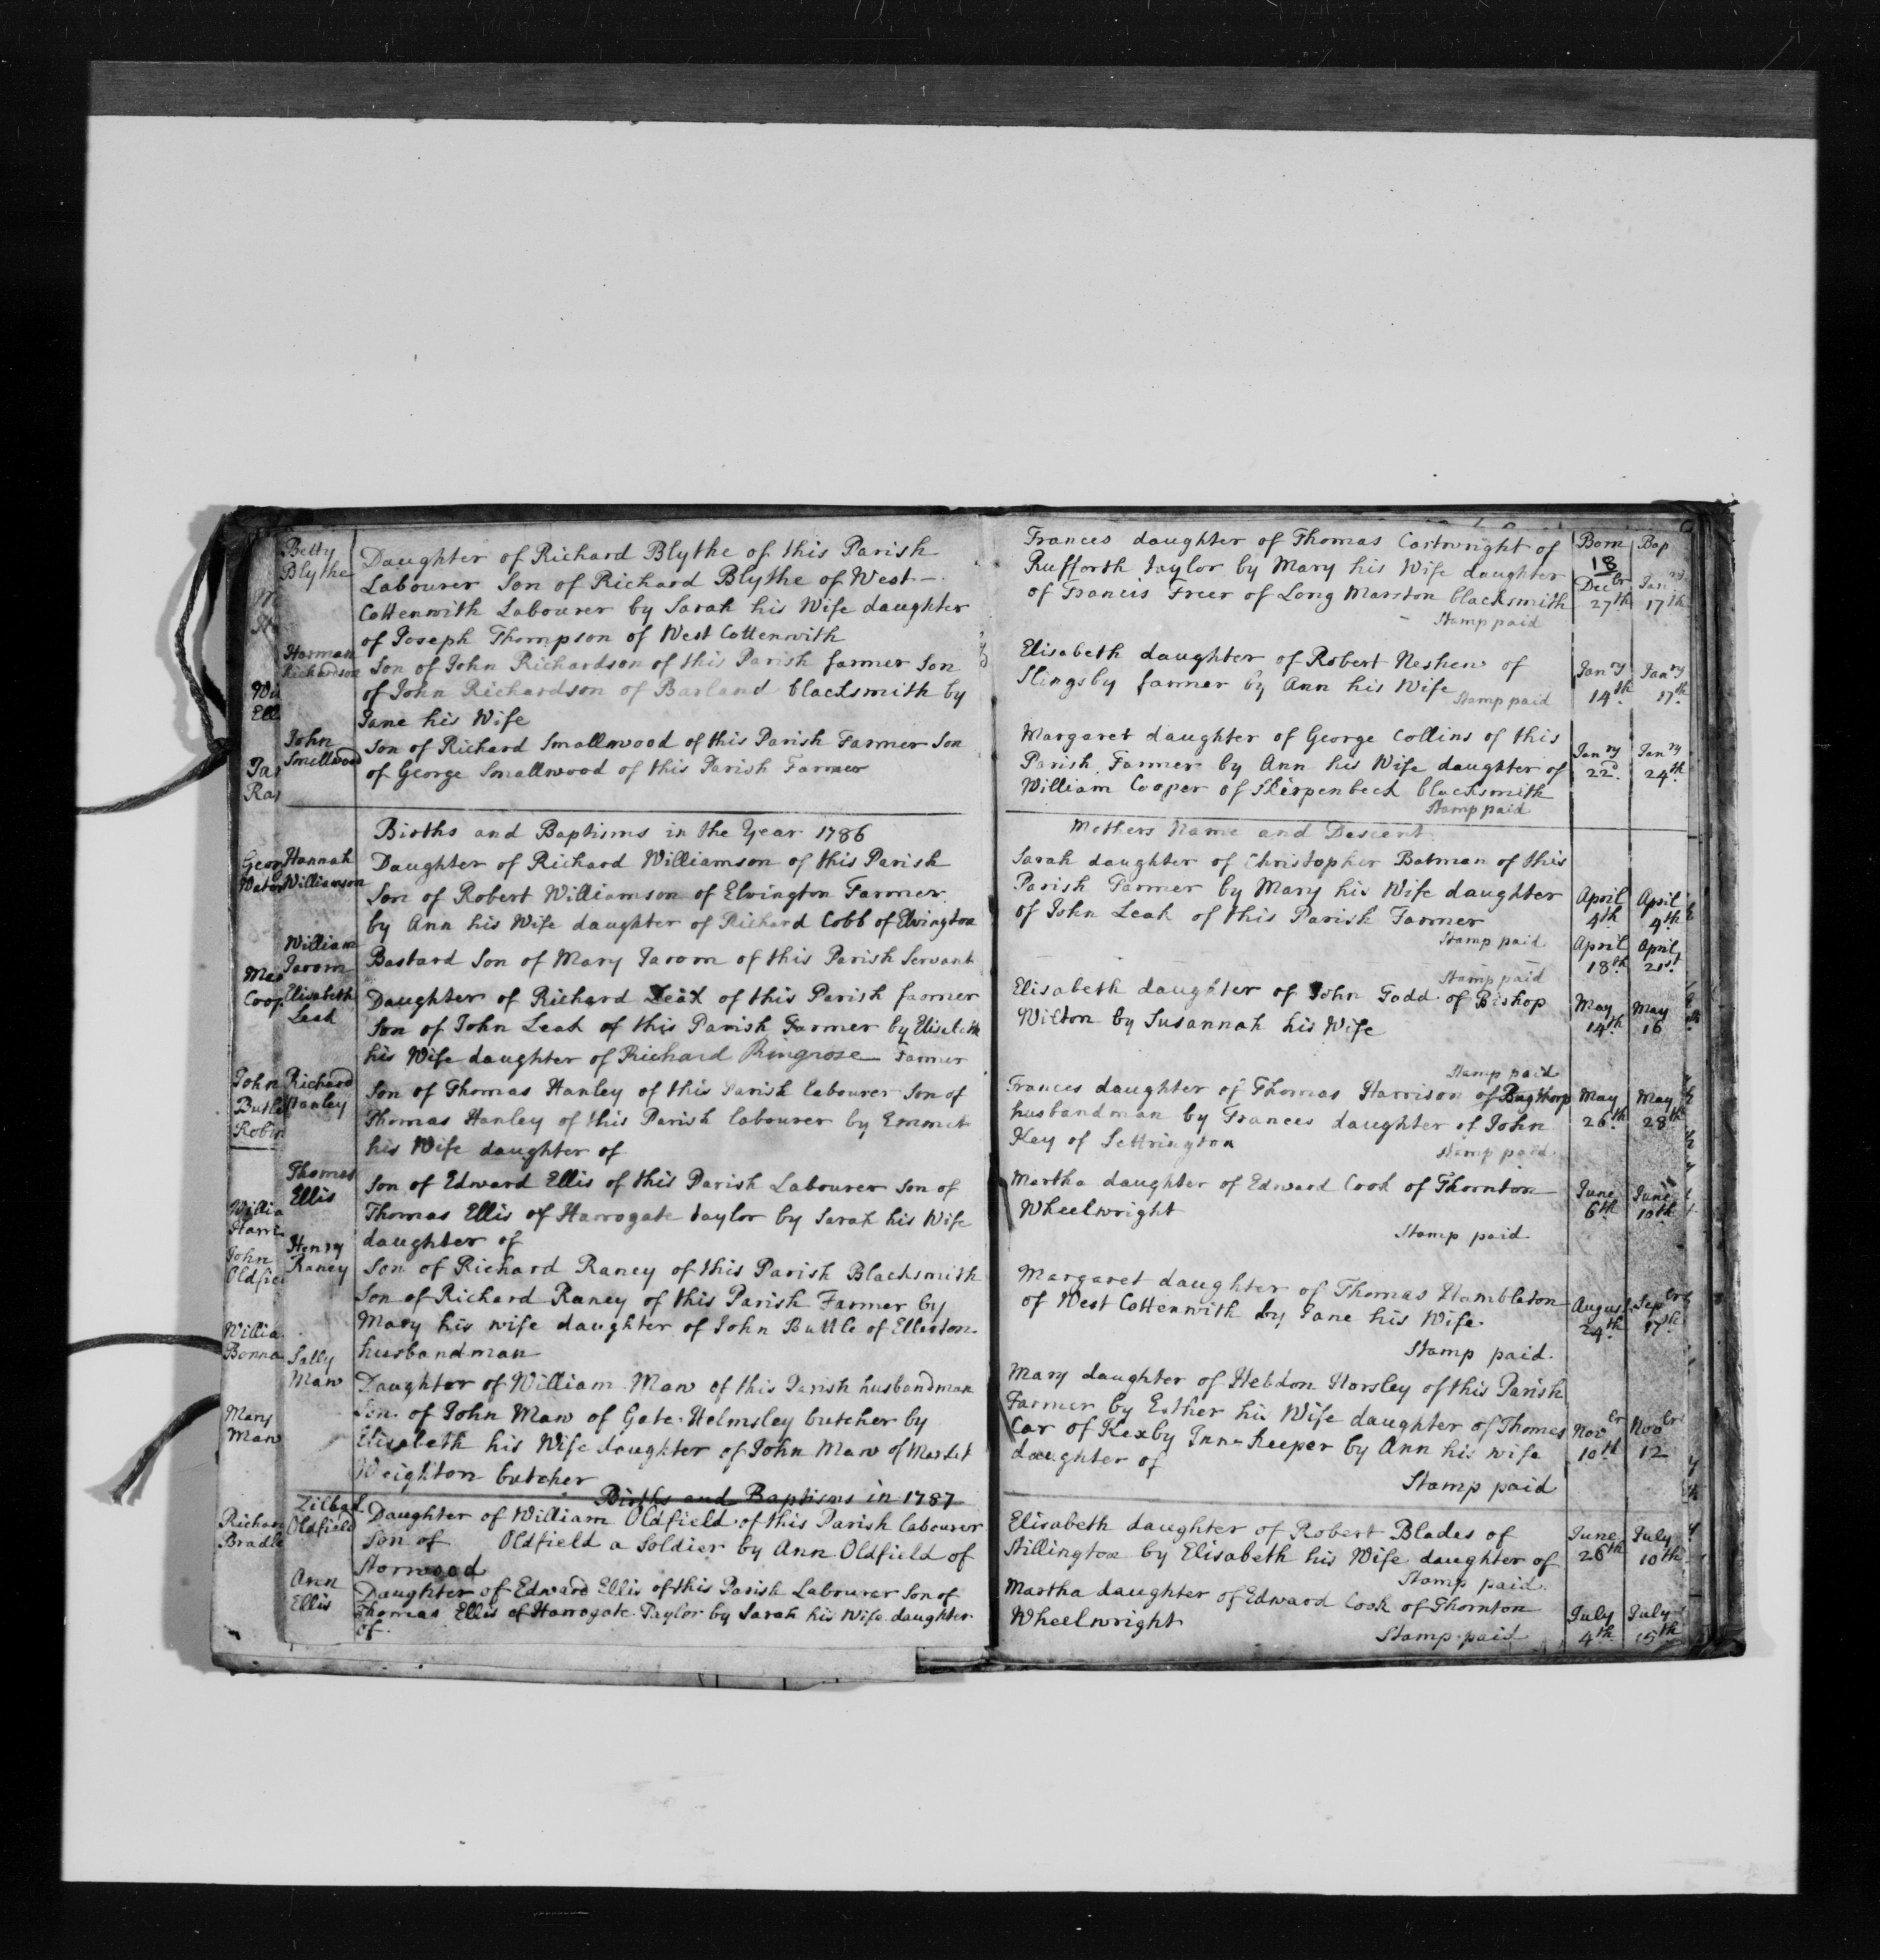 Betty
Blythe
Daughter of Richard Blythe of this Parish
Labourer Son of Richard Blythe of West-
Cottenwith Labourer by Sarah his Wife daughter
of Joseph Thompson of West Cottenwith
Harman
Richardson
Son of John Richardson of this Parish farmer Son
of John Richardson of Barland blacksmith by
Jane his Wife
John
Smallwood
Son of Richard Smallwood of this Parish Farmer Son
of George Smallwood of this Parish Farmer
Births and Baptisms in the Year 1786
Hannah
Williamson
Daughter of Richard Williamson of this Parish
Son of Robert Williamson of Elvington Farmer
by Ann his Wife daughter of Richard Cobb of Elvington
William
Jarom
Bastard Son of Mary Jarom of this Parish Servant
Elisabeth
Leak
Daughter of Richard Leak of this Parish farmer
Son of John Leak of this Parish Farmer by Elisabeth
his Wife daughter of Richard Ringrose Farmer
Richard
Hanley
Son of Thomas Hanley of this Parish labourer Son of
Thomas Hanley of this Parish labourer by Emmet
his Wife daughter of
Thomas
Ellis
Son of Edward Ellis of this Parish Labourer Son of
Thomas Ellis of Harrogate taylor by Sarah his Wife
daughter of
Henry
Raney
Son of Richard Raney of this Parish Blacksmith
Son of Richard Raney of this Parish Farmer by
Mary his wife daughter of John Buttle of Ellerton
husbandman
Sally
Maw
Daughter of William Maw of this Parish husbandman
Son of John Maw of Gate-Helmsley butcher by
Elisabeth his Wife daughter of John Maw of Market
Weighton butcher
Births and Baptisms in 1787
Oldfield
Daughter of William Oldfield of this Parish labourer
Son of Oldfield a Soldier by Ann Oldfield of
Storwood
Ann
Ellis
Daughter of Edward Ellis of this Parish Labourer Son of
Thomas Ellis of Harrogate Taylor by Sarah his Wife daughter
of
Wil
Ell
Geor
Mar
Coop
John
Butle
Robin
Willia
Harri
John
Oldfie
Willia
Bonna
Mary
Maw
Richar
Bradle
Born Bap
Frances daughter of Thomas Cartwright of
Rufforth taylor by Mary his Wife daughter
of Francis Freer of Long Marston blacksmith
18
Decbr 27th Janry 17th
Stamp paid
Elisabeth daughter of Robert Neshew of
Slingsby farmer by Ann his Wife
Stamp paid
Janry 14th Janry 17th
Margaret daughter of George Collins of this
Parish Farmer by Ann his Wife daughter of
William Cooper of Skirpenbeck blacksmith
Stamp paid
Janry 22d Janry 24th
Mothers Name and Descent
Sarah daughter of Christopher Batman of this
Parish Farmer by Mary his Wife daughter
of John Leak of this Parish Farmer
Stamp paid
April 4th April 4th
April 18th April 21st
Stamp paid
Elisabeth daughter of John Todd of Bishop
Wilton by Susannah his Wife
May 14th May 16
Stamp paid
Frances daughter of Thomas Harrison of Bugthorp
husbandman by Frances daughter of John
Key of Settrington
Stamp paid
May 26th May 28th
Martha daughter of Edward Cook of Thornton
Wheelwright
June 6th June 10th
Stamp paid
Margaret daughter of Thomas Hambleton
of West Cottenwith by Jane his Wife
August 24th Sepbr 17th
Stamp paid
Mary daughter of Hebdon Horsley of this Parish
Farmer by Esther his Wife daughter of Thomas
Car of Kexby Inn-keeper by Ann his wife
daughter of
Novbr 10th Novbr 12
Stamp paid
Elisabeth daughter of Robert Blades of
Stillington by Elisabeth his Wife daughter of
Stamp paid
June 26th July 10th
Martha daughter of Edward Cook of Thornton
Wheelwright
Stamp paid
July 4th July 15th